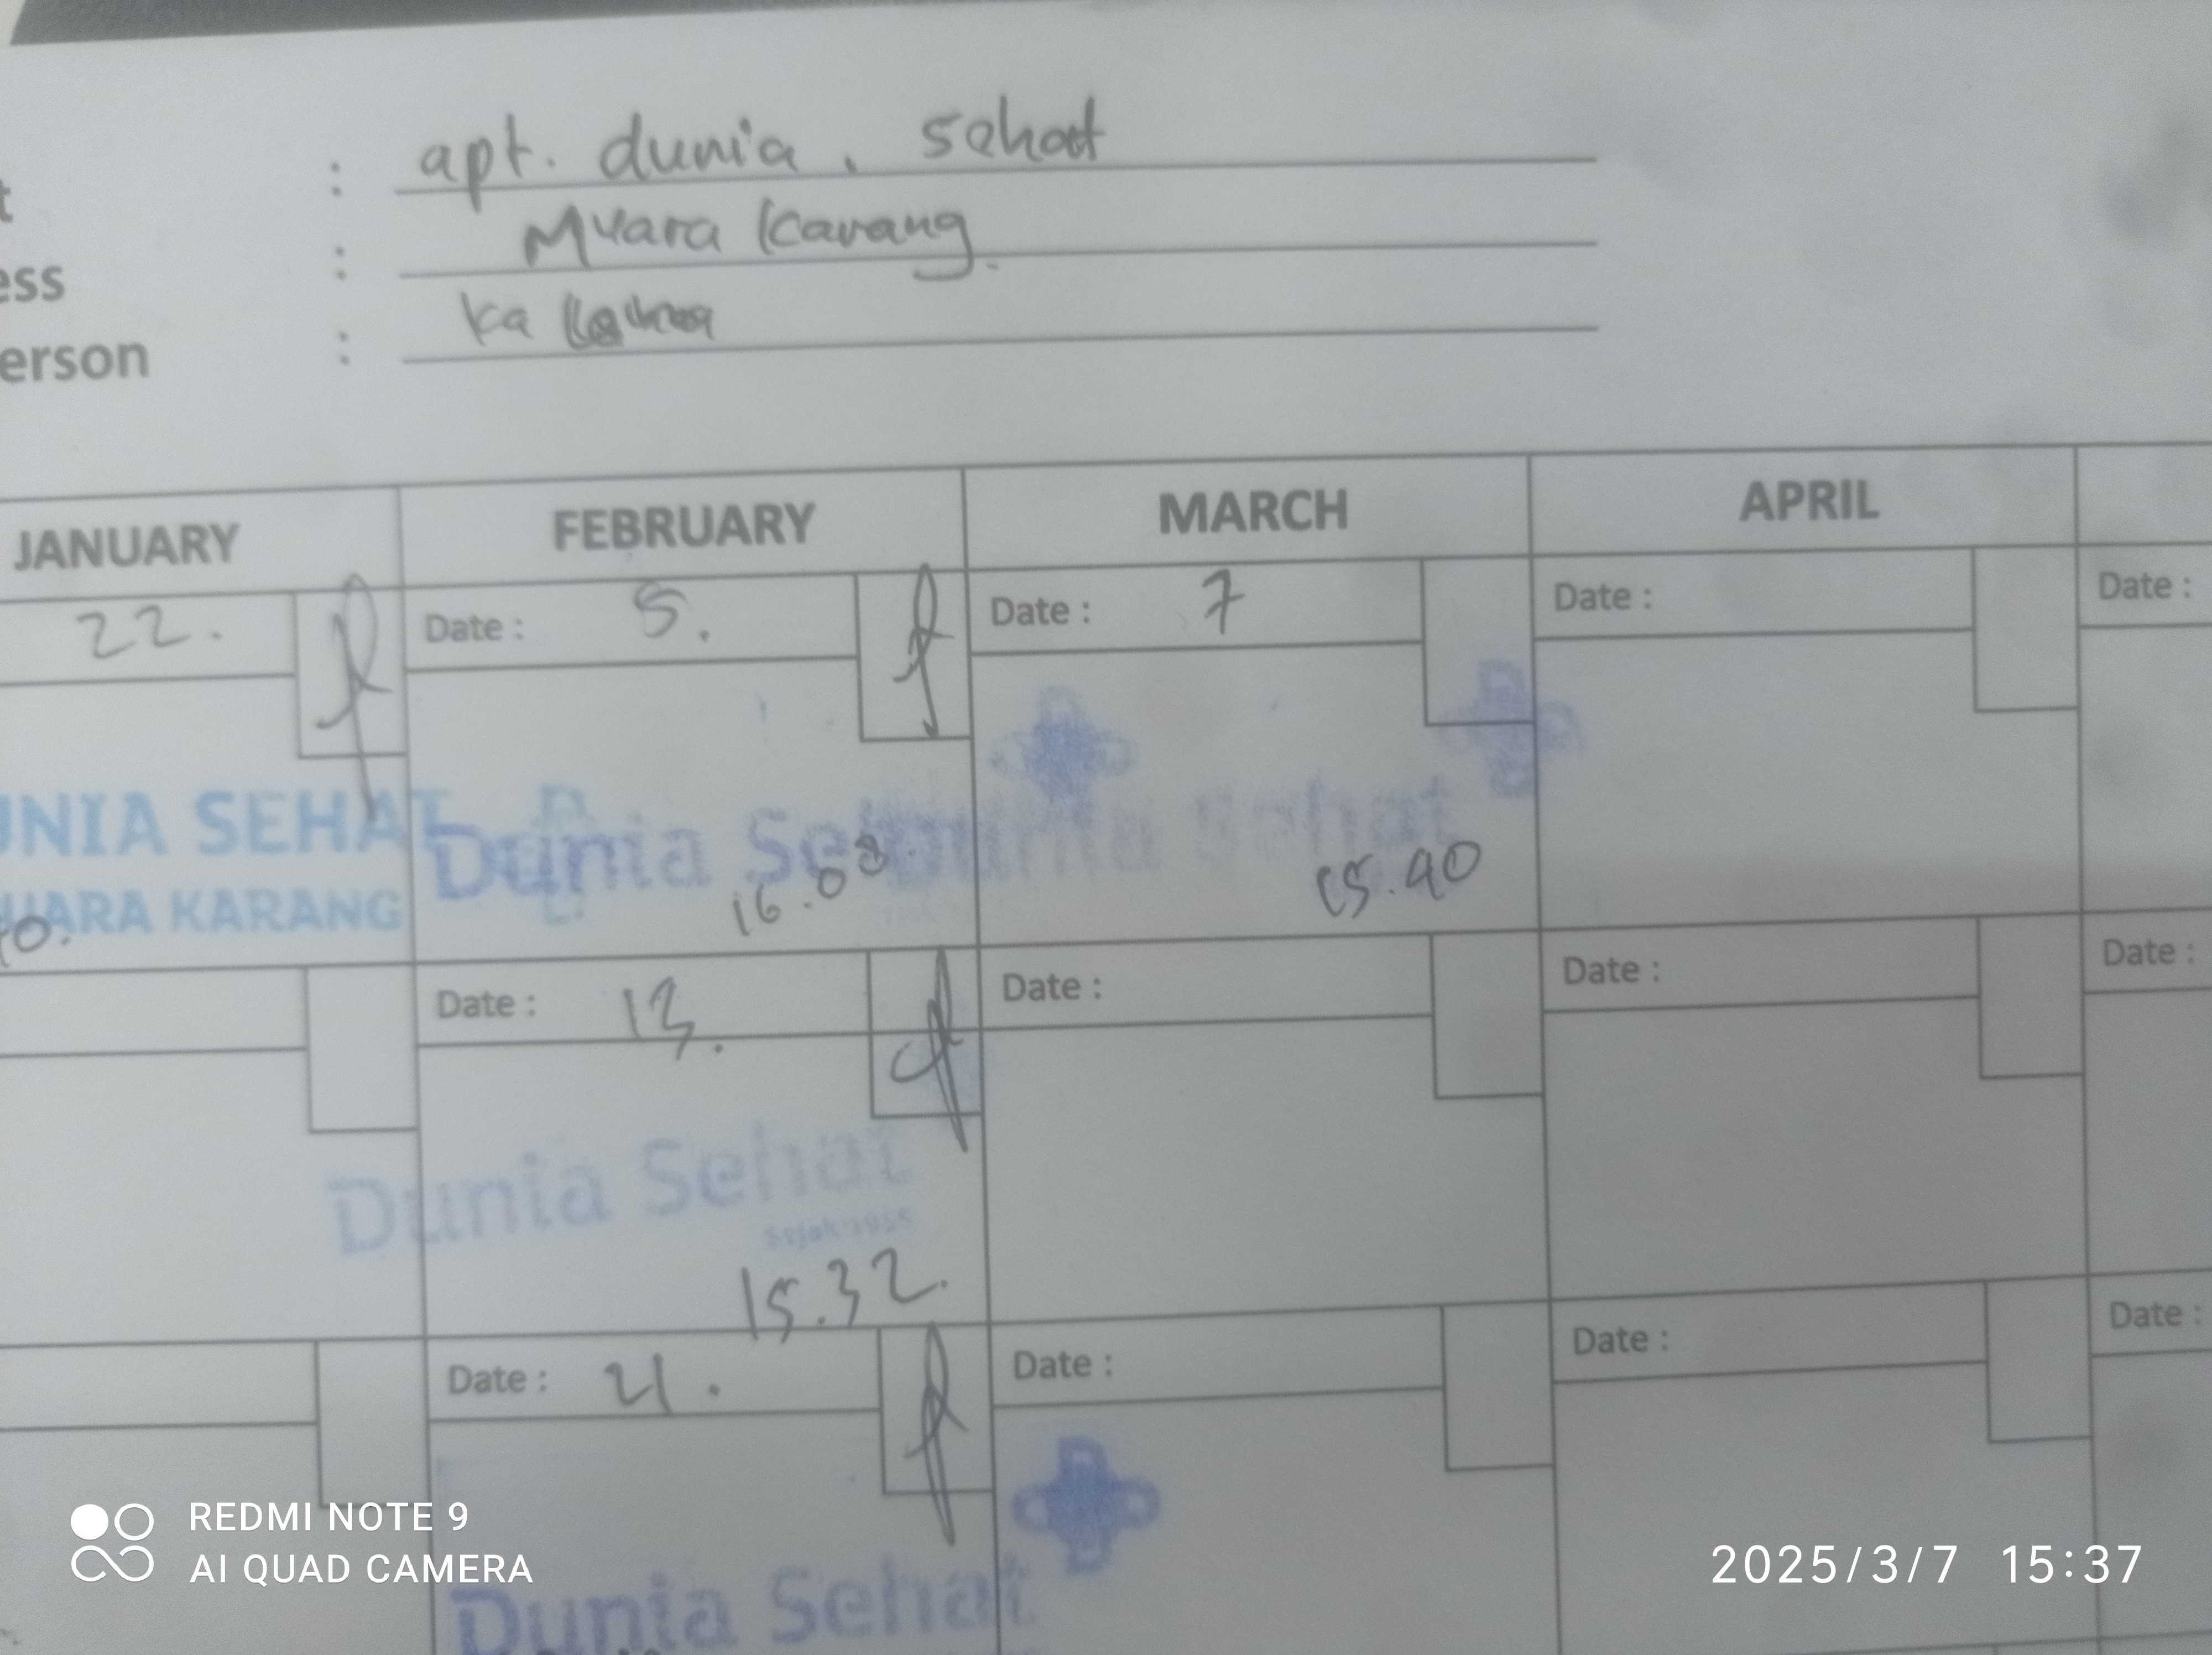 t : apt. dunia. sehat
ess : Muara Karang.
erson : ka
JANUARY FEBRUARY MARCH APRIL
22. Date : 5. Date : 7 Date : Date :
UNIA SEHAT Dunia Dunia Sehat
UARA KARANG 16.08 15.40
Date : 13. Date : Date : Date :
Dunia Sehat
Sejak 1955
15.32.
Date : 21. Date : Date : Date :
Dunia Sehat
REDMI NOTE 9
AI QUAD CAMERA
2025/3/7 15:37